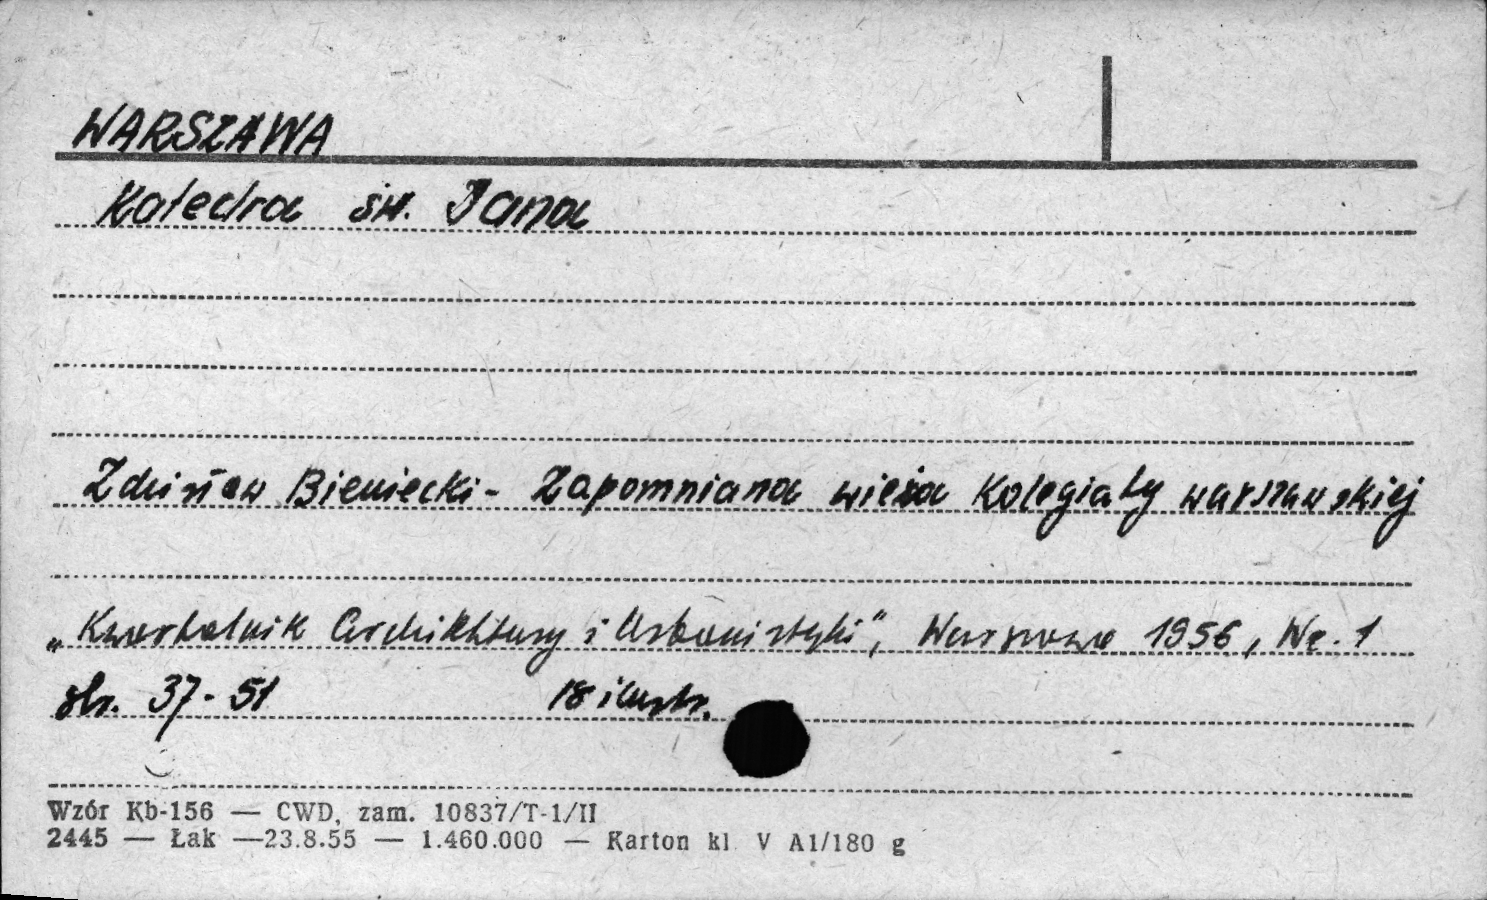 WARSZAWA
Katedra św. Jana
Zdzisław Bieniecki - Zapomniana wieża Kolegiaty warszawskiej
„Kwartalnik Architektury i Urbanistyki", Warszawa 1956, Nr. 1
str. 37-51 18 ilustr.
Wzór Kb-156 — CWD, zam. 10837/T-1/II
2445 — Łak —23.8.55 — 1.460.000 — Karton kl V A1/180 g